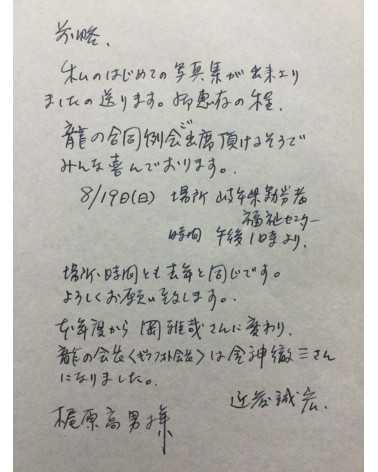 前略、
私のはじめての写真集が出来上り
ましたの送ります。御恵存の程、
龍の合同例会ご出席頂けるそうで
みんな喜んでおります。
8/19日(日) 場所 岐阜県勤労者
福祉センター
時間 午後1時より、
場所、時間とも去年と同じです。
よろしくお願い致します。
本年度から 岡雅哉さんに変わり、
龍の会长〈ギフフォト会长〉は金神徹三さん
になりました。
近藤誠宏、
梶原高男様